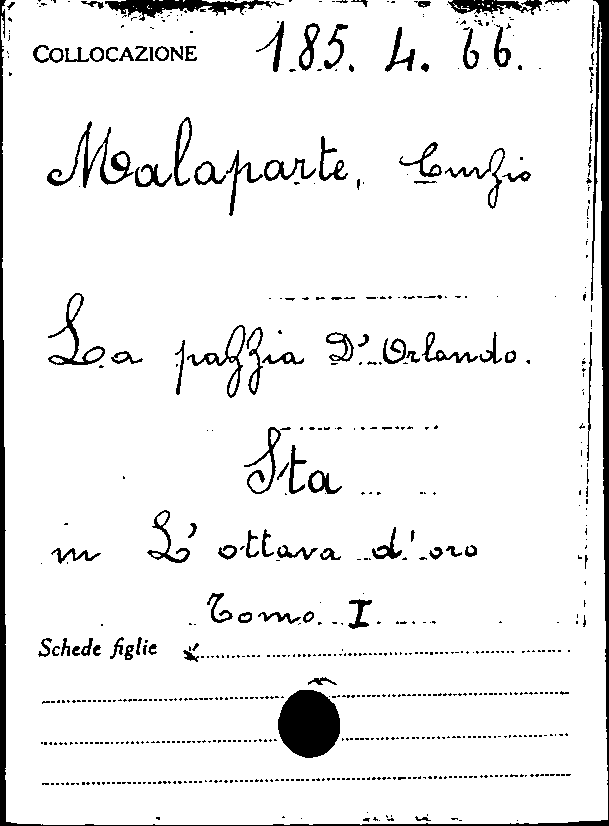 COLLOCAZIONE 185. 4. 66.
Malaparte, Curzio
La pazzia D'Orlando.
Sta
in L'ottava d'oro
Tomo I
Schede figlie